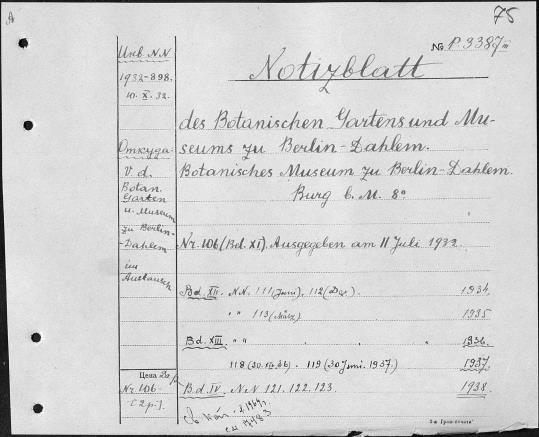 75
№ P.3387
Notizblatt
des Botanischen Gartens und Mu-
seums zu Berlin-Dahlem.
Botanisches Museum zu Berlin-Dahlem.
Burg b. M. 8°
Nr. 106 (Bd. XI). Ausgegeben am 11 Juli 1932.
Bd. XII. N.N. 111 (Juni). 112 (Dez.). 1934.
" " 113 (März) 1935
Bd. XIII. " " 1936.
118 (30. 36). 119 (30 Juni. 1937.) 1937.
Bd. IV. N.N 121. 122. 123. 1938.
Инв. N.N
1932-898.
X. 32.
Откуда
V. d.
Botan.
Garten
u. Museum
zu Berlin-
-Dahlem
im
Austausch
Цена
Nr. 106-